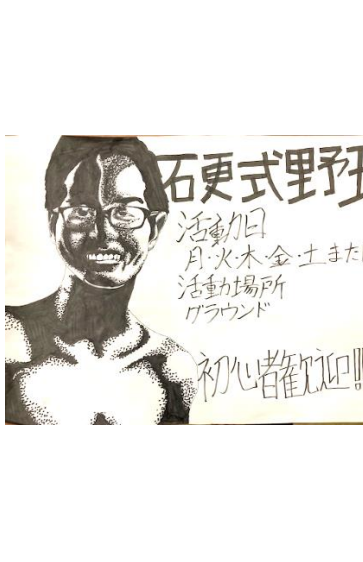 硬式野
活動日
月・火・木・金・土また
活動場所
グラウンド
初心者歓迎!!